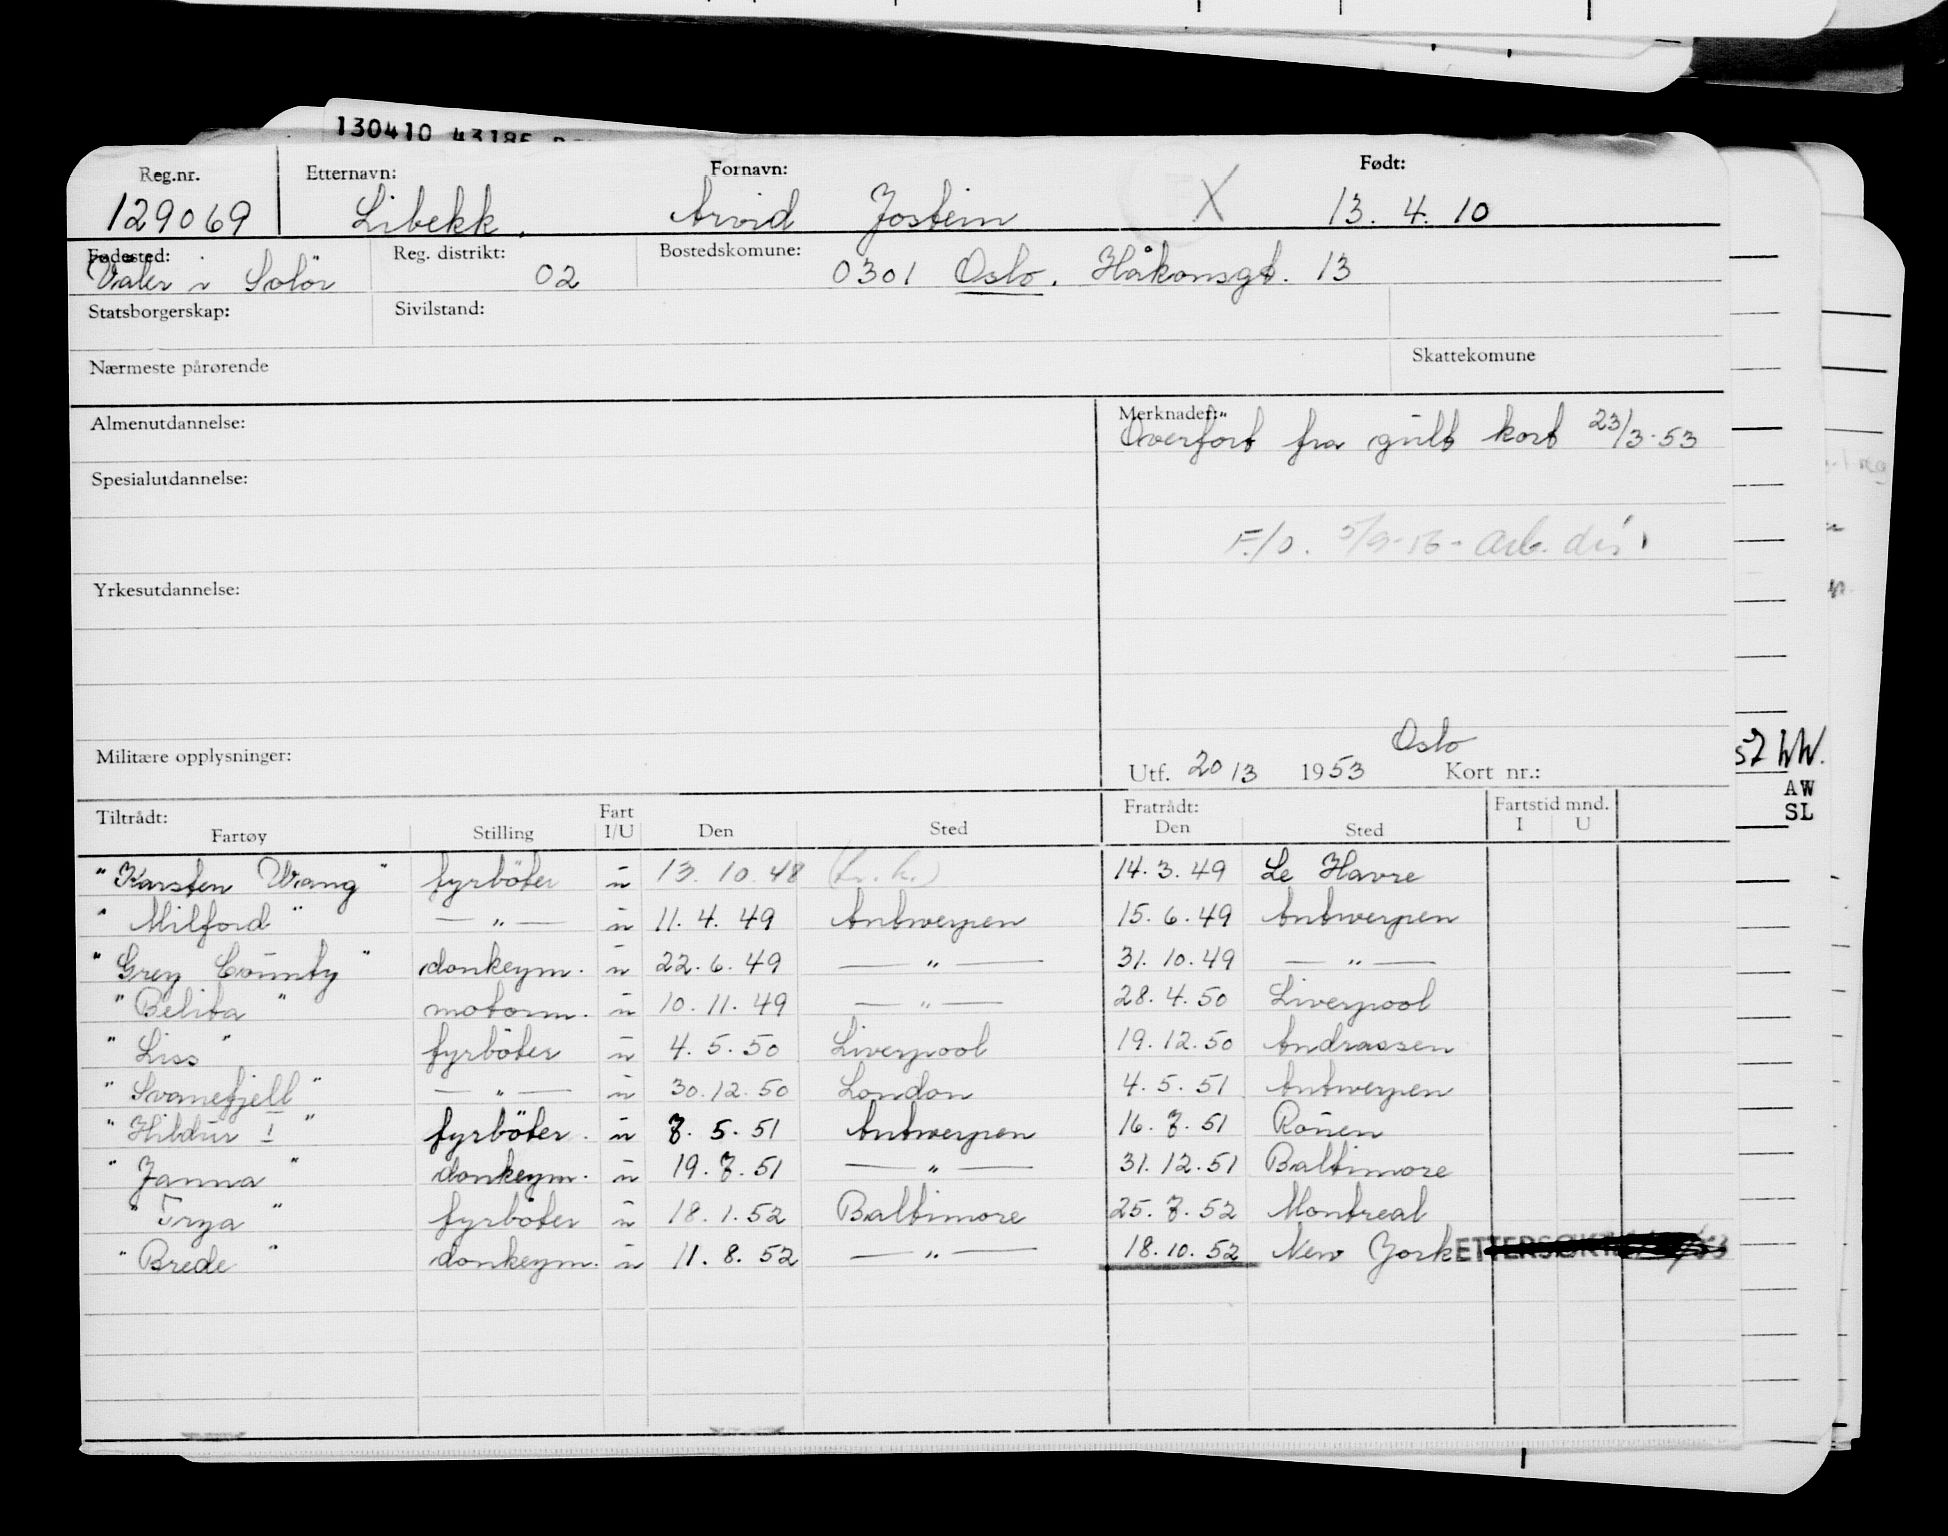 130410 43185
Reg.nr. Etternavn: Fornavn: Født:
129069 Libekk. Arvid Jostein X 13. 4. 10
Fødested: Reg. distrikt: Bostedskomune:
Våler i Solör 02 0301 Oslo. Håkonsgt. 13
Statsborgerskap: Sivilstand:
Nærmeste pårørende Skattekomune
Almenutdannelse: Merknader:
Överfört fra gult kort 23/3-53
Spesialutdannelse:
Yrkesutdannelse:
Oslo
Militære opplysninger: Utf. 20/3 1953 Kort nr.:
Tiltrådt: Fart Fratrådt: Fartstid mnd.
Fartøy Stilling I/U Den Sted Den Sted I U
"Karsten Wang" fyrböter u 13. 10. 48 14. 3. 49 Le Havre
"Milford" — " — u 11. 4. 49 Antwerpen 15. 6. 49 Antwerpen
"Grey County" donkeym. u 22. 6. 49 — " — 31. 10. 49 — " —
"Belita" motorm. u 10. 11. 49 — " — 28. 4. 50 Liverpool
"Liss" fyrböter u 4. 5. 50 Liverpool 19. 12. 50 Andrassen
"Svanefjell" — " — u 30. 12. 50 London 4. 5. 51 Antwerpen
"Hildur I" fyrböter. u 7. 5. 51 Antwerpen 16. 7. 51 Rouen
"Janna" donkeym. u 19. 7. 51 — " — 31. 12. 51 Baltimore
"Trya" fyrböter u 18. 1. 52 Baltimore 25. 7. 52 Montreal
"Brede" donkeym. u 11. 8. 52 — " — 18. 10. 52 New York
52 WW.
AW
SL